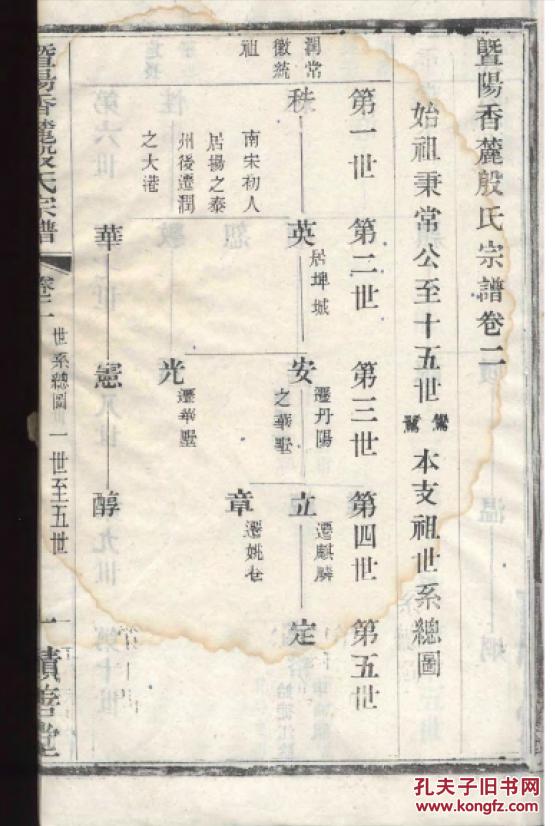 暨陽香麓殷氏宗譜卷二
始祖秉常公至十五世
本支祖世系總圖
第一世
第二世
第三世
第四世
第五世
潤常
徽統
祖
秩
南宋初人
居揚之泰
州後遷潤
之大港
英
居埤城
安
遷丹陽
之華墅
立
遷麒麟
定
章
遷姚巷
光
遷華墅
華
憲
醇
暨陽香麓殷氏宗譜
卷二
世系總圖
一世至五世
一
積善堂
孔夫子旧书网
www.kongfz.com